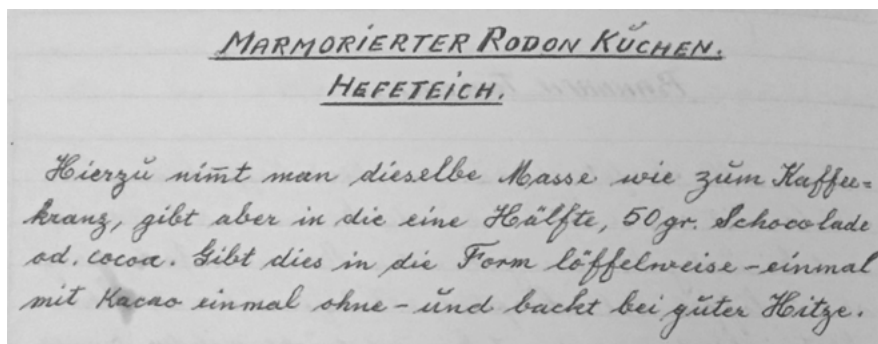 MARMORIERTER RODON KŬCHEN.
HEFETEICH.
Hierzŭ nim̄t man dieselbe Masse wie zŭm Kaffee=
kranz, gibt aber in die eine Hälfte, 50gr. Schocolade
od. cocoa. Gibt dies in die Form löffelweise - einmal
mit Kacao einmal ohne - ŭnd backt bei gŭter Hitze.